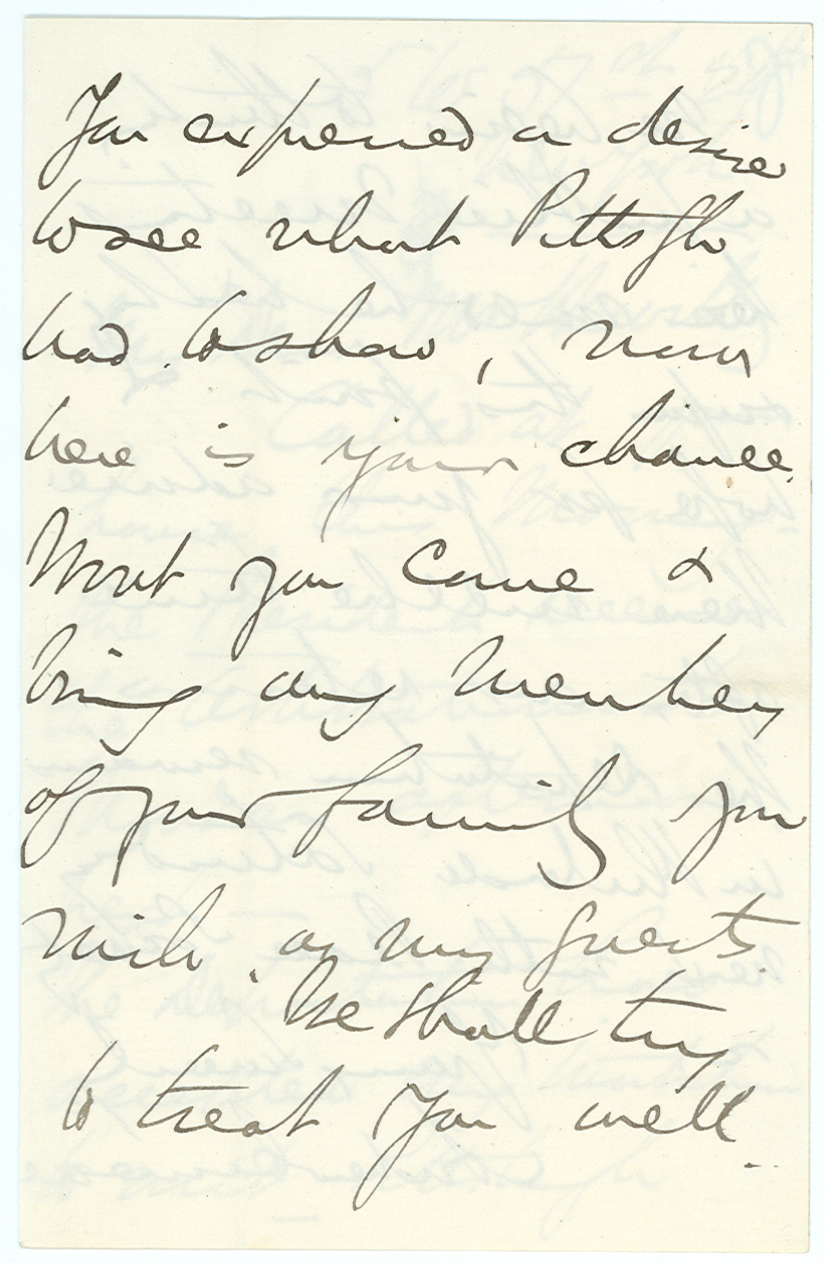 You expressed a desire
to see what Pittsgh
had to show, now
here is your chance.
Wont you come &
bring any member
of your family you
wish. as my guests.
We shall try
to treat you well.